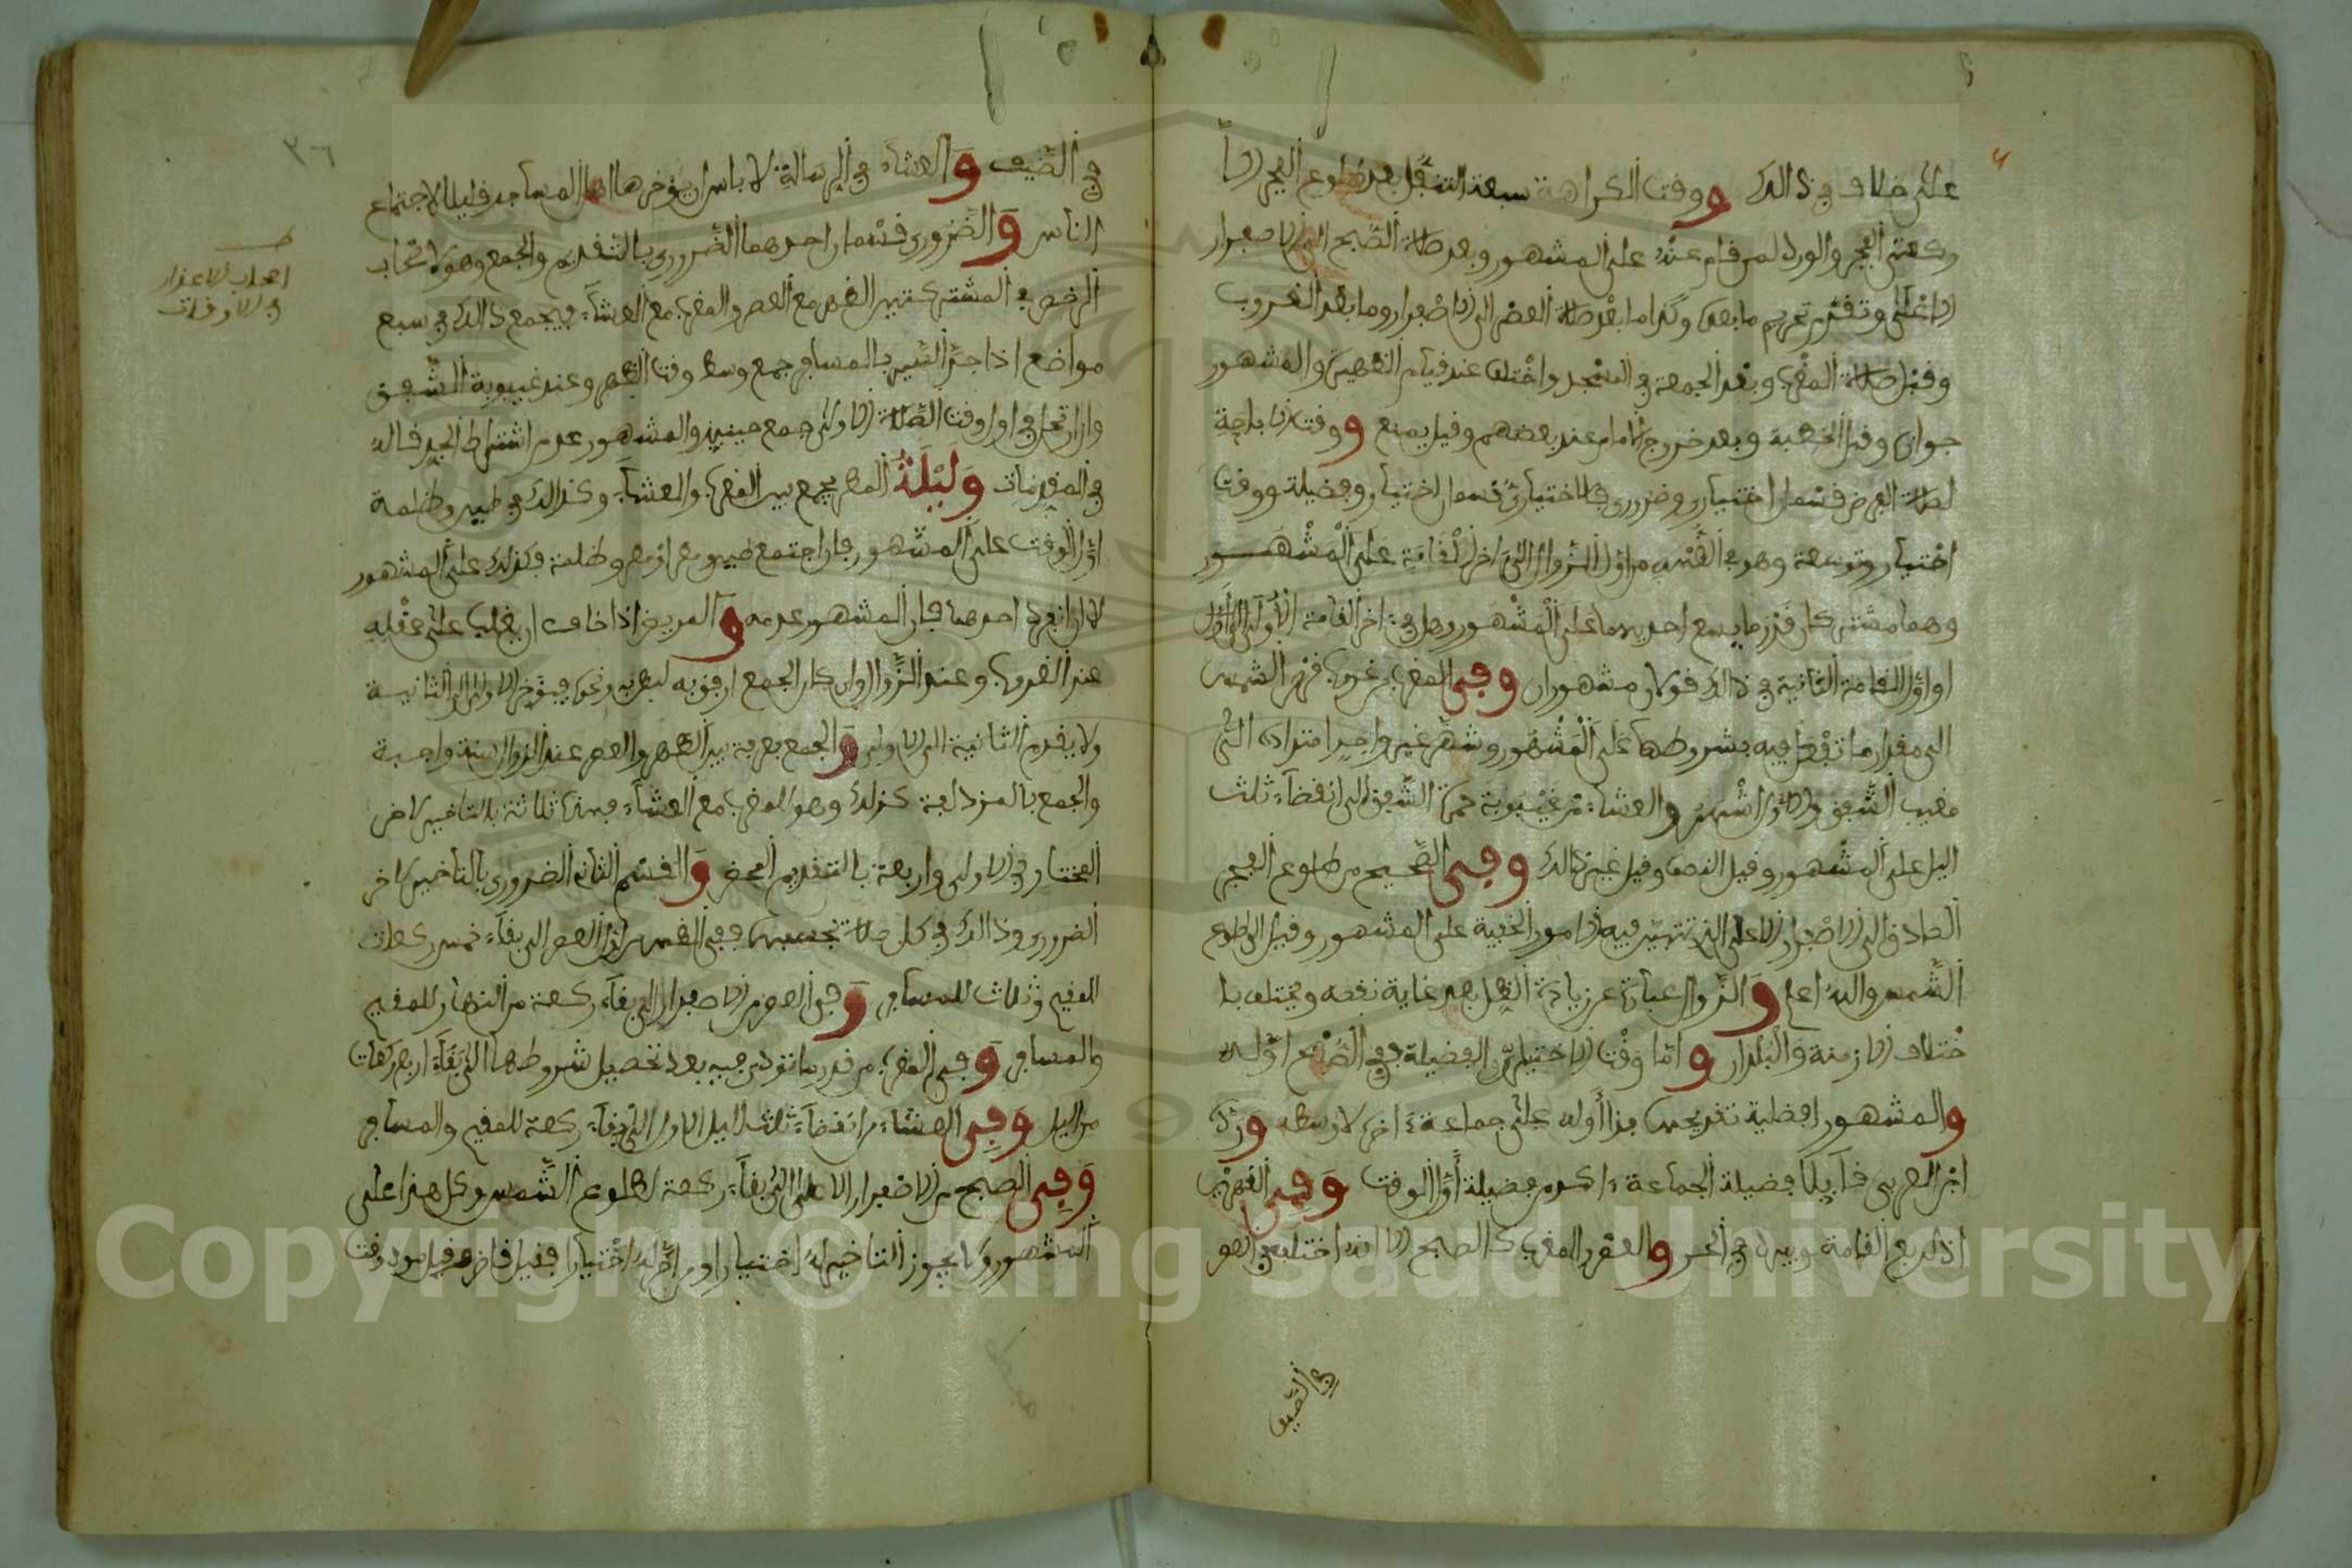 على خلاف في ذالك ووقت الكراهة سبعة التنفل بعد طلوع الفجر الا
ركعتي الفجر والورد لمن قام عنه على المشهور وبعد صلاة الصبح الى الاصفرار
الاعلى وتقدم تحريم ما بعده وكذا ما بعد صلاة العصر الى الاصفرار وما بعد الغروب
وقبل صلاة المغرب وبعد الجمعة في المسجد واختلف عند قيام الظهيرة والمشهور
جوازه وقبل الخطبة وبعد خروج الامام عند بعضهم وقيل يمنع ووقت الاباحة
لصلاة الفرض قسمان اختياري وضروري فالاختياري قسمان اختيار وفضيلة ووقت
اختيار وتوسعة وهو في الظهر من اول الزوال الى اخر القامة على المشهور
وهما مشتركان قدر ما يسع احديهما على المشهور وهل في اخر القامة الاولى
او اول القامة الثانية في ذالك قولان مشهوران وفي المغرب من غروب قرص الشمس
الى مقدار ما تفعل فيه بشروطها على المشهور وشهر غير واحد امتداده الى
مغيب الشفق والاول اشهر والعشاء من غيبوبة حمرة الشفق الى انقضاء ثلث
اليل على المشهور وقيل النصف وقيل غير ذالك وفي الصبح من طلوع الفجر
الصادق الى الاصفرار الاعلى الذي تتميز فيه الامور الخفية على المشهور وقيل الى طلوع
الشمس والله اعلم والزوال عبارة عن زيادة الظل بعد غاية نقصه ويختلف با
ختلاف الازمنة والبلدان واما وقت الاختيار والفضيلة ففي الصبح اوله
والمشهور افضلية تقديمها فذا اوله على جماعة اخره لا وسطه ورده
ابن العربي قايلا فضيلة الجماعة اكد من فضيلة اول الوقت وفي الظهر
اذ لربع القامة ويبرد في الحر والعصر والمغرب كالصبح الا انه اختلف في الهو
في الصيف
في الصيف والعشاء في الرسالة لا باس ان يؤخرها اهل المساجد قليلا لاجتماع
الناس والضروري قسمان احدهما الضروري بالتقديم والجمع وهو لاصحاب
الرخص في المشتركتين الظهر مع العصر والمغرب مع العشاء فيجمع ذالك في سبع
مواضع اذا جد السير بالمسافر جمع وسط وقت الظهر وعند غيبوبة الشفق
وان ارتحل في اول وقت الصلاة الاولى جمع حينيذ والمشهور عدم اشتراط الجد قاله
في المقدمات وليلة المطر يجمع بين المغرب والعشاء وكذالك في طين وظلمة
اول الوقت على المشهور فان اجتمع طين ومطر او مطر وظلمة فكذلك على المشهور
لا ان انفرد احدهما فان المشهور عدمه والمريض اذا خاف ان يغلب على عقله
عند الغروب وعند الزوال وان كان الجمع ارفق به لبطن به ونحوه فيؤخر الاولى الى الثانية
ولا يقدم الثانية الى الاولى والجمع بعرفة بين الظهر والعصر عند الزوال سنة واجبة
والجمع بالمزدلفة كذلك وهو للمغرب مع العشاء فهذه ثلاثة بالتاخير لاخر
المختار في الاولى واربعة بالتقديم المحض والقسم الثاني الضروري بالتاخير لاخر
الضروري وذالك في كل صلاة بحسبها ففي الظهر العصر الى بقاء خمس ركعات
للمقيم وثلاث للمسافر وفي العصر من الاصفرار الى بقاء ركعة من النهار للمقيم
والمسافر وفي المغرب من قدر ما تؤدى فيه بعد تحصيل شروطها الى بقاء اربع ركعات
من اليل وفي العشاء من انقضاء ثلث اليل الاول الى بقاء ركعة للمقيم والمسافر
وفي الصبح من الاصفرار الاعلى الى بقاء ركعة لطلوع الشمس وكل هذا على
المشهور ولا يجوز التاخير له اختيارا ومن اخر له اختيارا فقيل قاض وقيل مود وقت
٣٦
اصحاب الاعذار
في الاوقات
Copyright © King Saud University
1957